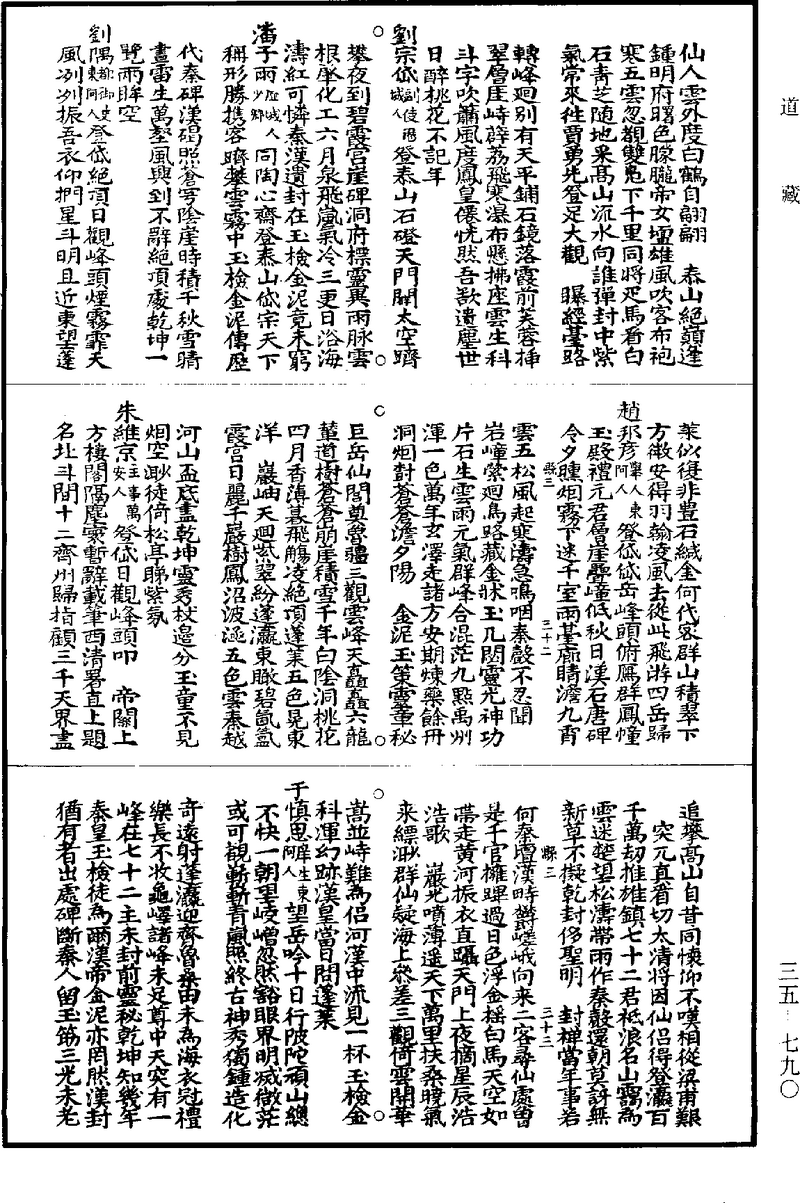 道藏
仙人雲外度白鶴自翩翩　泰山絕巔逢
鍾明府曙色朦朧帝女壇雄風吹客布袍
寒五雲忽覩雙鳧下千里同將疋馬看白
石青芝隨地采高山流水向誰彈封中紫
氣常來往賈勇先登足大觀　曝經臺路
轉峰迴別有天平鋪石鏡落霞前芙蓉插
翠層崖峙薜荔飛寒瀑布懸拂座雲生科
斗字吹簫風度鳳皇僊恍然吾欲遺塵世
日醉桃花不記年
劉宗岱登泰山石磴天門開太空躋
攀夜到碧霞宮崖碑洞府標靈異雨脉雲
根肇化工六月泉飛嵐氣冷三更日浴海
濤紅可憐秦漢遺封在玉檢金泥竟未窮
潘子雨歷城人同陶心齋登泰山岱宗天下
稱形勝携客躋攀雲霧中玉檢金泥傳歷
代秦碑漢碣照蒼穹陰崖時積千秋雪晴
晝雷生萬壑風興到不辭絕頂處乾坤一
覽兩眸空
劉隅都御史東阿人登岱絕頂日觀峰頭煙霧霏天
風冽冽振吾衣仰捫星斗明且近東望蓬
萊似復非豊石緘金何代客群山積翠下
方微安得羽翰凌風去從此飛游四岳歸
趙邦彥舉人東阿人登岱岱岳峰頭俯鴈群鳳幢
玉殿禮元君層崖疊嶂低秋日漢石唐碑
令夕曛烟霧下迷千室雨臺廊晴澹九霄
縣三　三十二
雲五松風起寒濤急嗚咽秦聲不忍聞
岩嶂縈迴鳥路藏金牀玉几閟靈光神功
片石生雲雨元氣群峰合混茫九點禹州
渾一色萬年玄澤走諸方安期煉藥餘丹
洞烟對蒼蒼澹夕陽　金泥玉策靈書秘
巨岳仙閭奠魯疆三觀雲峰天矗矗六龍
輦道樹蒼蒼崩崖積雪千年白陰洞桃花
四月香薄暮飛觴凌絕頂蓬萊五色晃東
洋　巖岫天迴紫翠紛蓬瀛東瞰碧氤氳
霞宮日麗千嚴樹鳳沼波涵五色雲秦越
河山盃底盡乾坤靈秀杖邊分玉童不見
烟空渺徒倚松亭睇紫氛
朱維京主事萬安人登岱日觀峰頭叩　帝關上
方樓閣隔塵寰暫辭載筆西清署直上題
名北斗間十二齊州歸指顧三千天界盡
追攀高山自昔同懷仰不嘆相從梁甫艱
突兀直看切太清將因仙侶得登瀛百
千萬劫推雄鎮七十二君祗浪名山靄為
雲迷楚望松濤帶雨作秦聲還朝莫訝無
新草不擬乾封侈聖明　封禪當年事若
縣三　三十三
何秦壇漢畤鬱嵯峨向來二客尋仙處曾
是千官擁蹕過日色浮金樣白馬天空如
帶走黃河振衣直躡天門上夜摘星辰浩
浩歌　巖光噴薄遥天下萬里扶桑曉氣
來縹渺群仙疑海上叅差三觀倚雲開華
嵩並峙難為侶河漢中流見一杯玉檢金
科渾幻跡漢皇當日問蓬萊
于慎思庠生東阿人望岳吟十日行陂陀頑山總
不快一朝里崚嶒忽然豁眼界明滅微茫
或可觀嶄嶄青嵐照終古神秀獨鍾造化
奇遠射蓬瀛迎齊魯桑田未為海衣冠禮
樂長不妆龜嶧諸峰未足尊中天突有一
峰在七十二主未封前靈秘乾坤知幾年
秦皇玉檢徒為爾漢帝金泥亦罔然漢封
猶有者出處碑斷秦人留玉筯三光未老
三五-七九〇